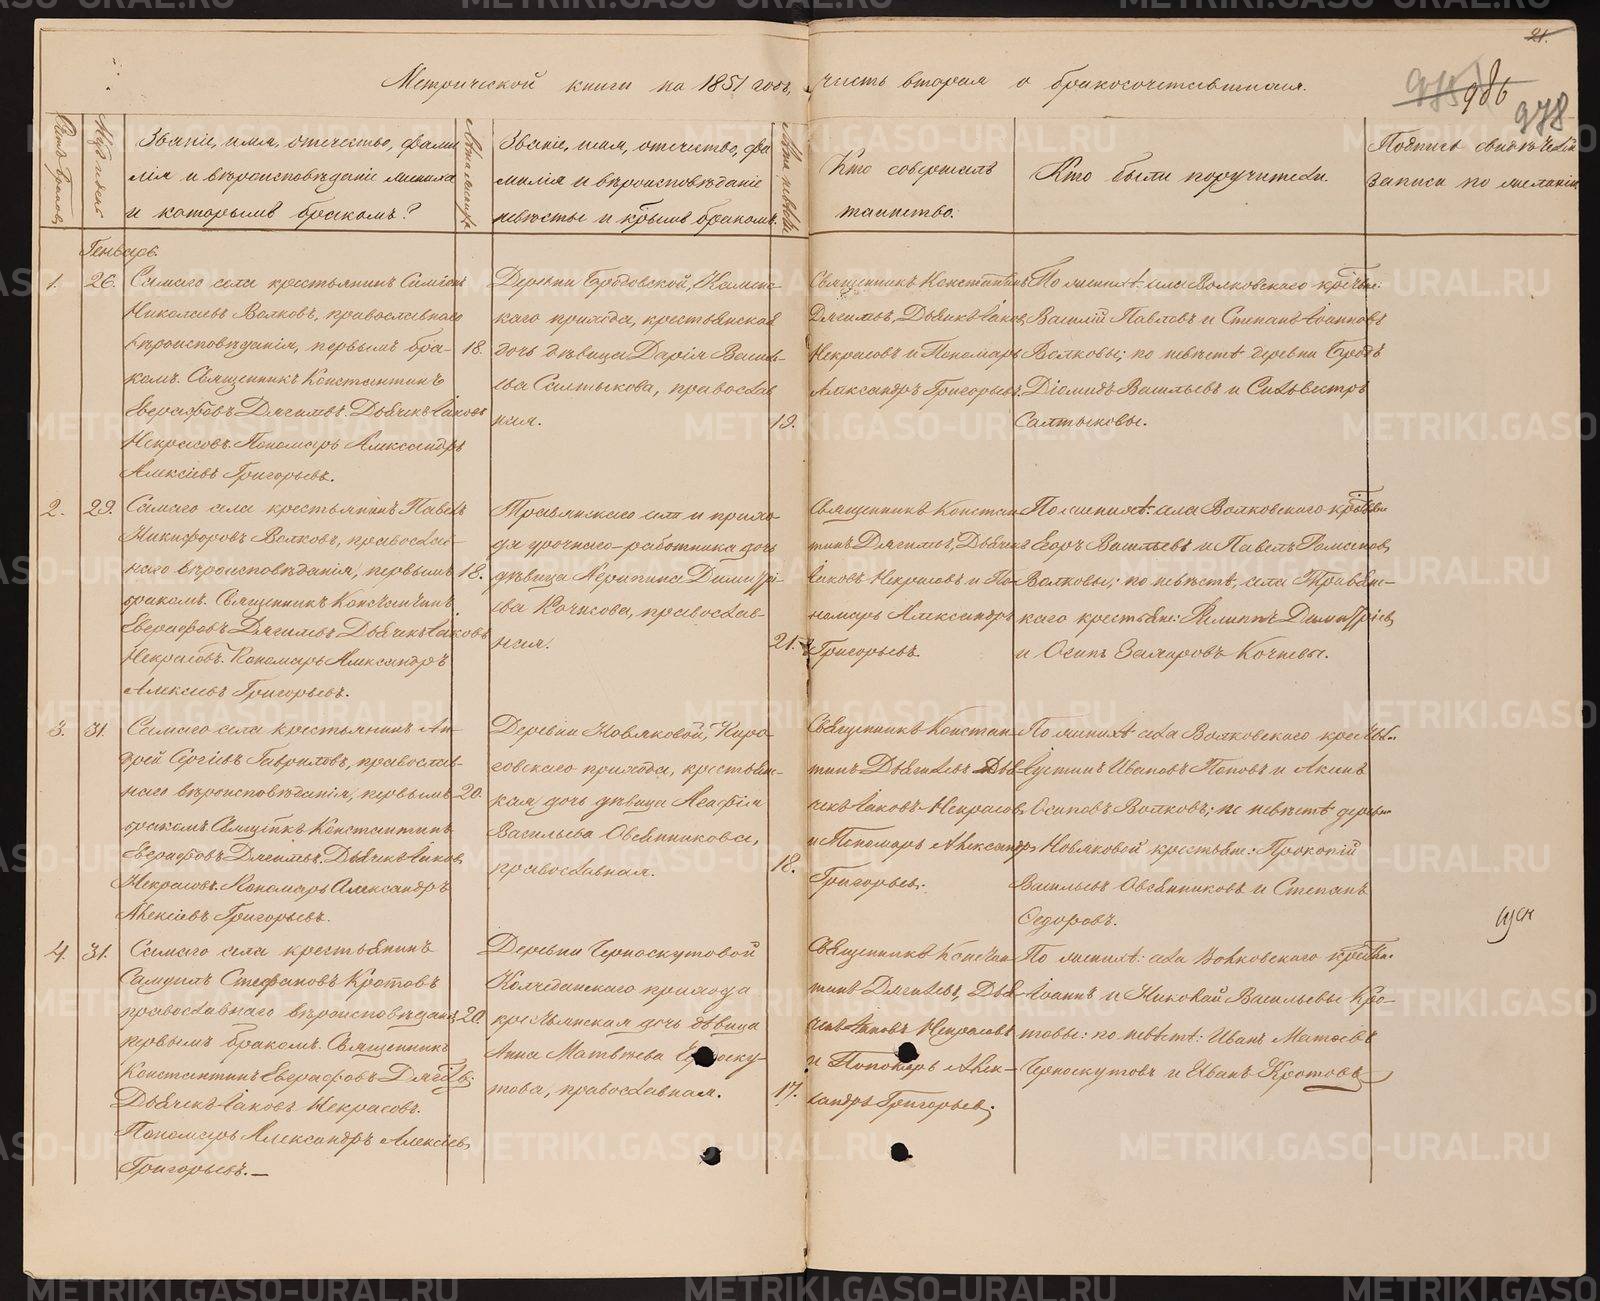 Метрической книги на 1851 годъ, часть вторая о бракосочетавшихся.
21.
975
986
978
Счетъ браковъ
Званіе, имя, отечество, фами
лія и вѣроисповѣданіе жениха
и которымъ бракомъ?
Лѣта жениха
Званіе, имя, отечество, фа
милія и вѣроисповѣданіе
невѣсты и крымъ бракомъ.
Лѣта невѣсты
Кто совершалъ
таинство.
Кто были поручители.
Подпись свидѣтелей
записи по желанію
Генварь.
1.
26.
Самаго села крестьянинъ
Николаевъ Волковъ, православнаго
вѣроисповѣданія, первымъ бра-
комъ. Священникъ Константинъ
Евграфовъ Дягилевъ. Дьячекъ Іаковъ
Некрасовъ. Пономарь Александръ
Алексіевъ Григорьевъ.
18.
Деревни Бродовской, Камен-
скаго прихода, крестьянская
дочь дѣвица Дарія Василь-
ева Салтыкова, православ
ная.
19.
Священникъ Константинъ
Дягилевъ, Дьячекъ Іаковъ
Некрасовъ и Пономарь
Александръ Григорьевъ.
По женихѣ: села Волковскаго
Василій Павловъ и Степанъ Іоанновъ
Волковы; по невѣстѣ деревни Бродъ
Діомидъ Васильевъ и Сильвестръ
Салтыковы.
2.
29.
Самаго села крестьянинъ Павелъ
Никифоровъ Волковъ, православ-
наго вѣроисповѣданія, первымъ
бракомъ. Священникъ Константинъ
Евграфовъ Дягилевъ Дьячекъ Іаковъ
Некрасовъ. Пономарь Александръ
Алексіевъ Григорьевъ.
18.
Травянскаго села и прихо-
да урочнаго-работника дочь
дѣвица Димитрі-
ева Кочнова, православ-
ная.
21.
Священникъ Констан
тинъ Дягилевъ, Дьячекъ
Іаковъ Некрасовъ и По
номарь Александръ
Григорьевъ.
По женихѣ: села Волковскаго
Егоръ Васильевъ и Павелъ Романовъ
Волковы; по невѣстѣ, села Травян-
скаго крестьяне: Филиппъ Димитріевъ
и Осипъ Кочневы.
3.
31.
Самаго села крестьянинъ Ан-
дрей Сергіевъ Гавриловъ, православ-
наго вѣроисповѣданія, первымъ
бракомъ. Священникъ Константинъ
Евграфовъ Дягилевъ. Дьячекъ Іаковъ
Некрасовъ. Пономарь Александръ
Алексіевъ Григорьевъ.
20.
Деревни Новяковой,
говскаго прихода, крестьян-
ская дочь дѣвица Агафія
Васильева Овсянникова,
православная.
18.
Священникъ Констан
тинъ Дягилевъ Дья-
чекъ Іаковъ Некрасовъ
и Пономарь Александръ
Григорьев.
По женихѣ села Волковскаго
Іустинъ Ивановъ Поповъ и
Осиповъ Волковъ; по невѣстѣ деревни
Новяковой крестьяне: Прокопій
Васильевъ Овсянниковъ и Степанъ
Ѳедоровъ.
4.
31.
Самаго села крестьянинъ
Самуилъ Стефановъ Кротовъ
православнаго вѣроисповѣданія
первымъ бракомъ. Священникъ
Константинъ Евграфовъ Дягилевъ.
Дьячекъ Іаковъ Некрасовъ.
Пономарь Александръ Алексіевъ
Григорьевъ.—
20.
Деревни Черноскутовой
Колчеданскаго прихода
крестьянская дочь дѣвица
Анна Матвѣева Черноску-
това, православная.
17.
Священникъ Констан
тинъ Дягилевъ, Дья-
чекъ Іаковъ Некрасовъ
и Пономарь Алек-
сандръ Григорьев.
По женихѣ: села Волковскаго
Іоаннъ и Николай Васильевы Кро-
товы: по невѣстѣ: Иванъ
Черноскутовъ и Иванъ Кротовъ
METRIKI.GASO-URAL.RU